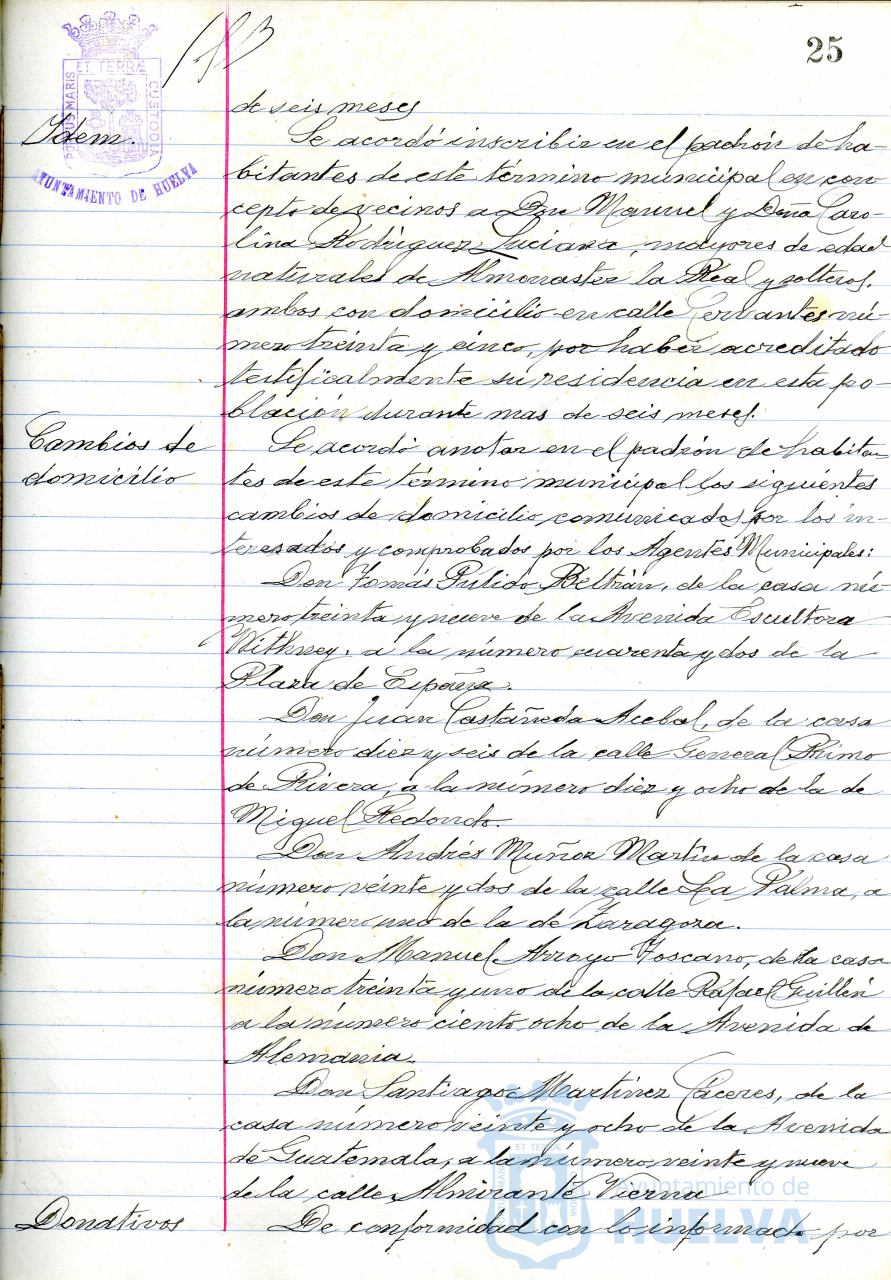 25
PORTUS MARIS ET TERRÆ CUSTODIA
AYUNTAMIENTO DE HUELVA
de seis meses
Idem.
Se acordó inscribir en el padrón de ha-
bitantes de este término municipal en con
cepto de vecinos a Don Manuel y Doña Caro-
lina Rodríguez Luciana, mayores de edad
naturales de Almonaster la Real y solteros,
ambos con domicilio en calle Cervantes nú-
mero treinta y cinco, por haber acreditado
testificalmente su residencia en esta po-
blación durante mas de seis meses.
Cambios de
domicilio
Se acordó anotar en el padrón de habitan
tes de este término municipal los siguientes
cambios de domicilio comunicados por los in-
teresados y comprobados por los Agentes Municipales:
Don Tomás Pulido Beltrán, de la casa nú-
mero treinta y nueve de la Avenida Escultora
Withney, a la número cuarenta y dos de la
Plaza de España.
Don Juan Castañeda Acebal, de la casa
número diez y seis de la calle General Primo
de Rivera, a la número diez y ocho de la de
Miguel Redondo.
Don Andrés Muñoz Martín de la casa
número veinte y dos de la calle La Palma, a
la número uno de la de Zaragoza.
Don Manuel Arroyo Toscano, de la casa
número treinta y uno de la calle Rafael Guillén
a la número ciento ocho de la Avenida de
Alemania.
Don Santiago Martínez Cáceres, de la
casa número veinte y ocho de la Avenida
de Guatemala, a la número veinte y nueve
de la calle Almirante Vierna
Donativos
De conformidad con lo informado por
Ayuntamiento de
HUELVA